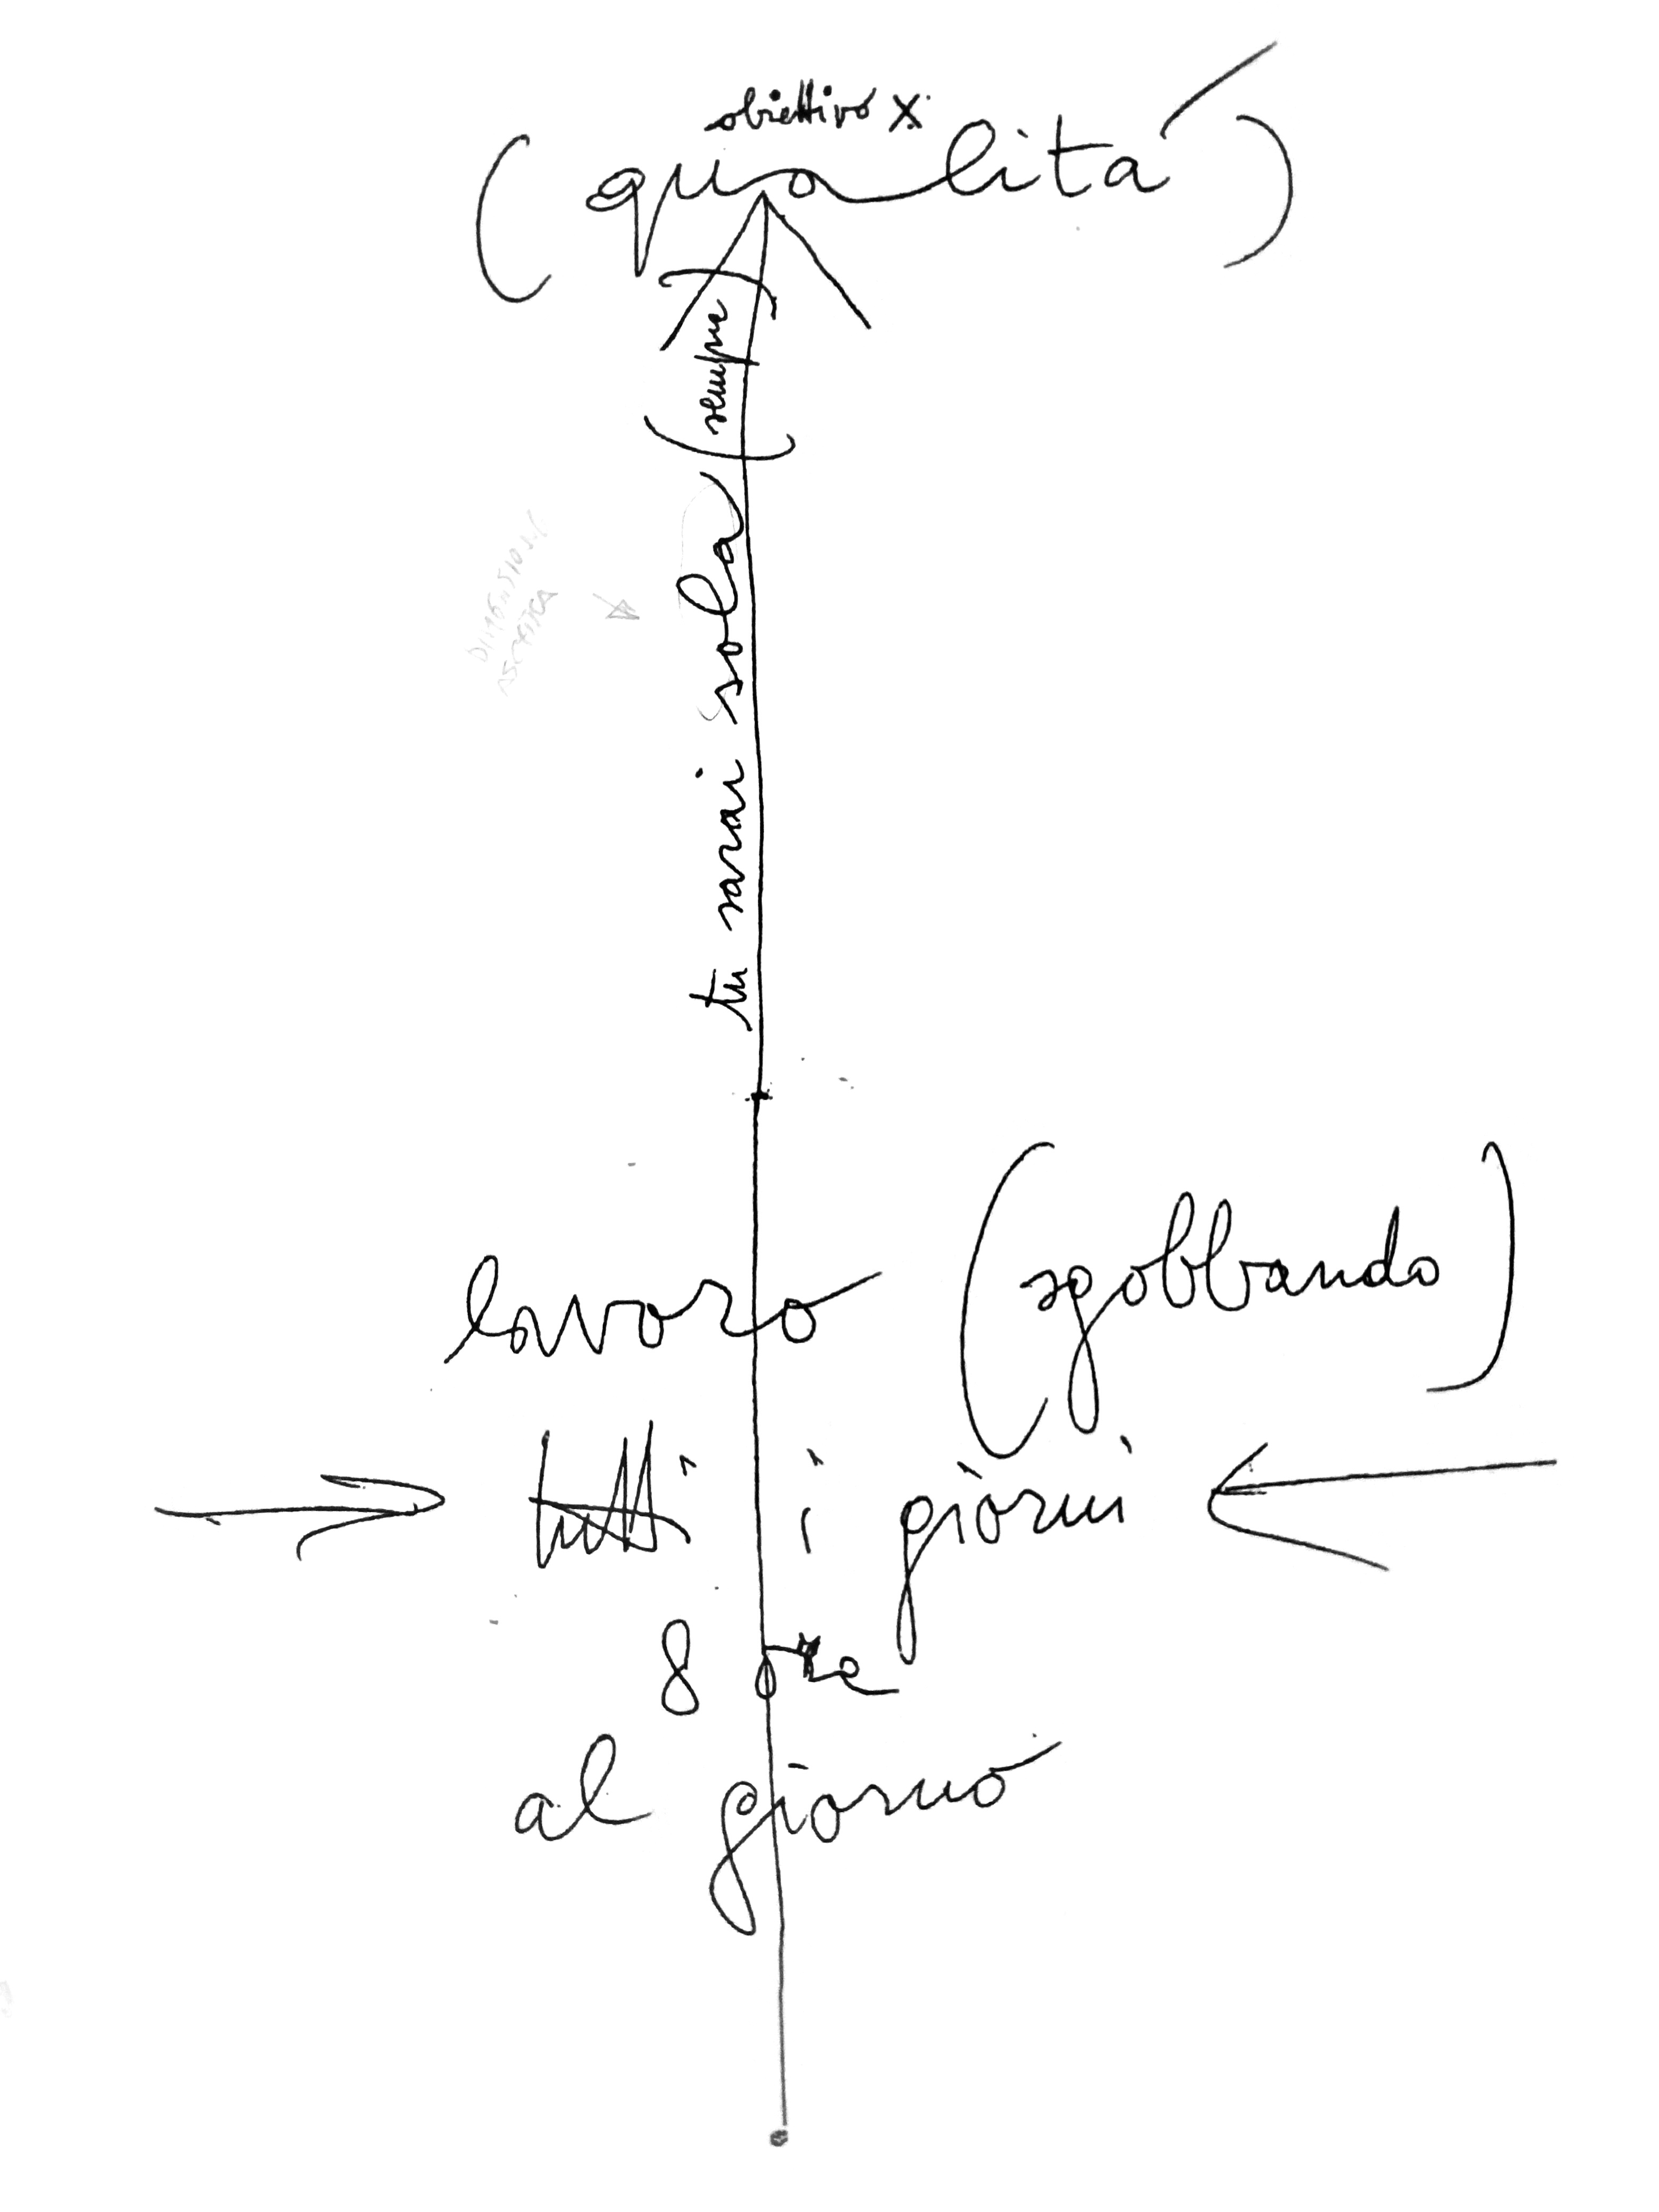 obiettivo X
(qualità)
tu sarai sola (sempre)
DIMENSIONE
ASCETICA
lavoro (sgobbando)
tutti i giorni
8 ore
al giorno